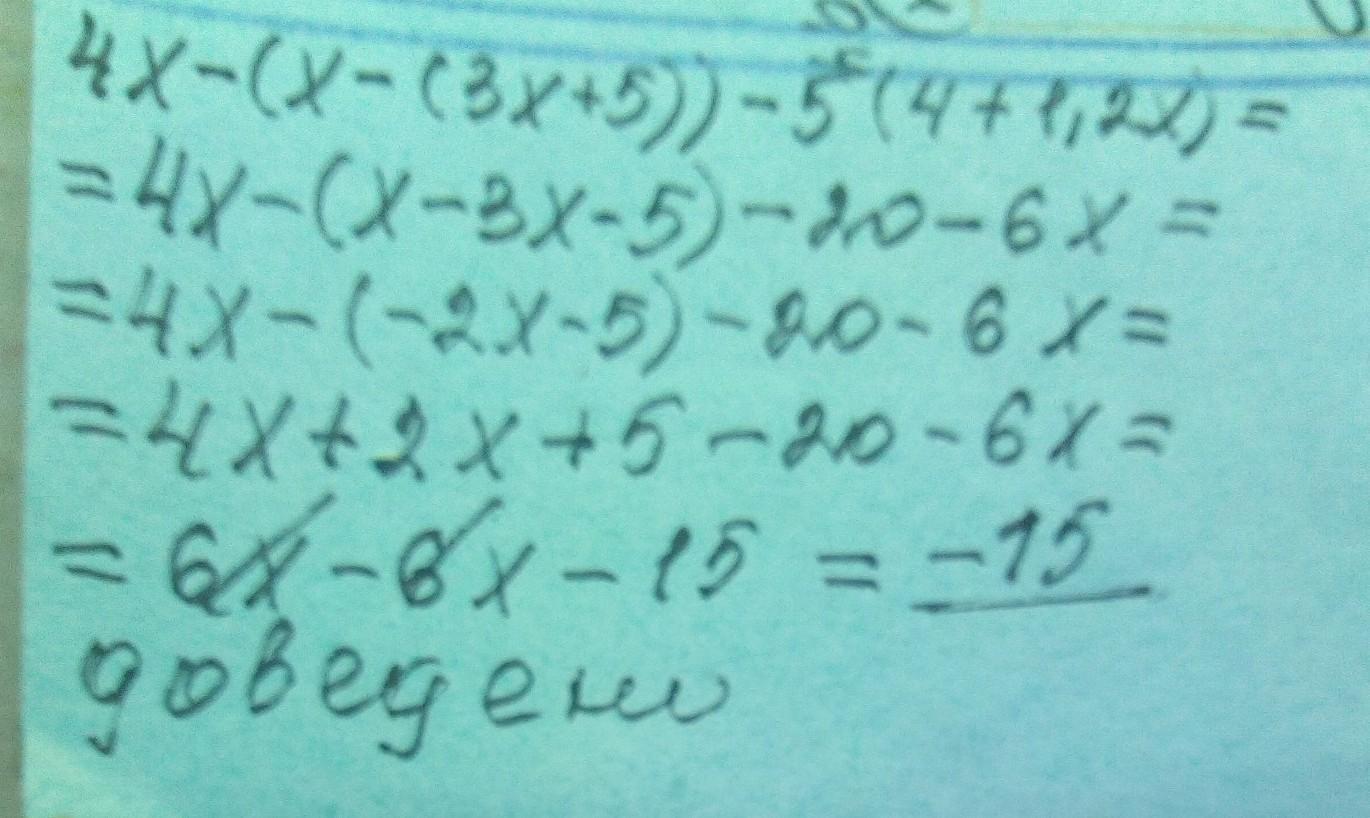 4x-(x-(3x+5))-5(4+1,2x)=
=4x-(x-3x-5)-20-6x=
=4x-(-2x-5)-20-6x=
=4x+2x+5-20-6x=
=6x-6x-15=-15
доведено